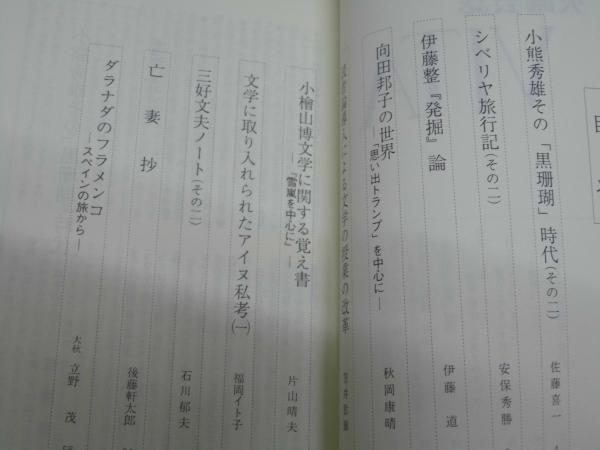 小熊秀雄その「黒珊瑚」時代(その二)
佐藤喜一
シベリヤ旅行記(その二)
安保秀勝
伊藤整『発掘』論
伊藤道
向田邦子の世界
―「思い出トランプ」を中心に―
秋岡康晴
による文学の授業の改革
小檜山博文学に関する覚え書
―「雪嵐を中心に」―
片山晴夫
文学に取り入れられたアイヌ私考(一)
福岡イト子
三好文夫ノート(その二)
石川郁夫
亡妻抄
後藤軒太郎
ダラナダのフラメンコ
―スペインの旅から―
立野茂